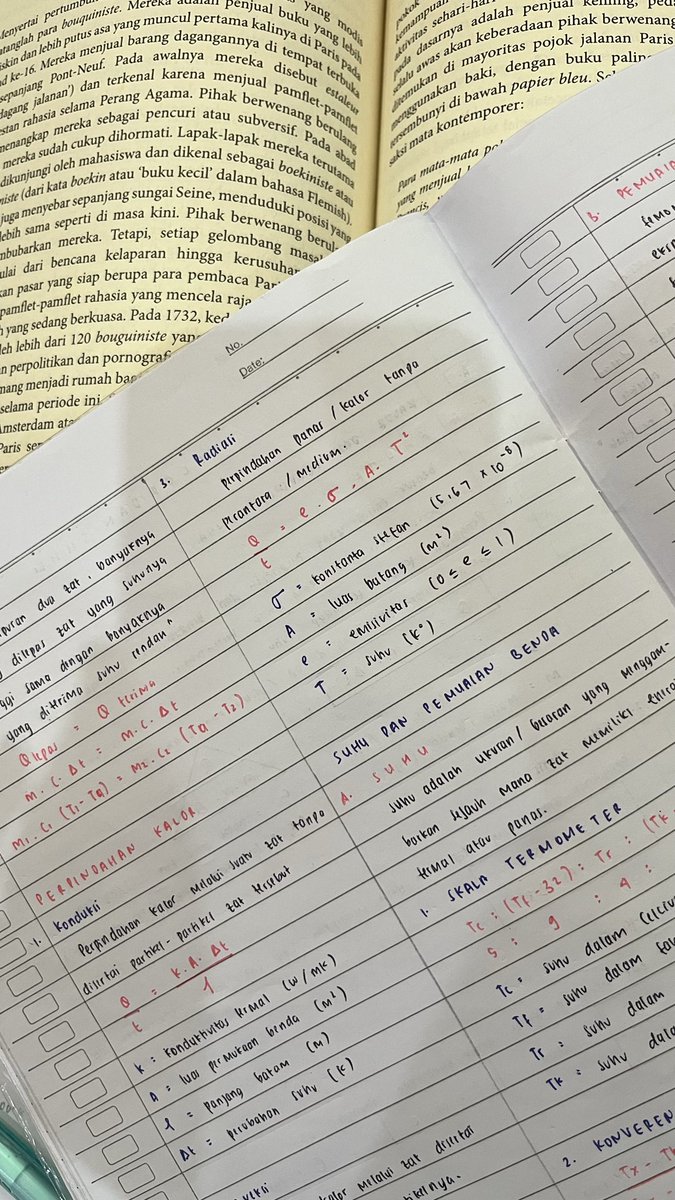 yang modis
Menyertai
Mereka adalah penjual buku yang lebih
miskin dan lebih putus asa yang muncul pertama kalinya di Paris pada
ad ke-16. Mereka menjual barang dagangannya di tempat terbuka
sepanjang Pont-Neuf. Pada awalnya mereka disebut estaleur
dagang jalanan') dan terkenal karena menjual pamflet-pamflet
estan rahasia selama Perang Agama. Pihak berwenang berulang
menangkap mereka sebagai pencuri atau subversif. Pada abad
mereka sudah cukup dihormati. Lapak-lapak mereka terutama
dikunjungi oleh mahasiswa dan dikenal sebagai boekiniste atau
niste (dari kata boekin atau 'buku kecil' dalam bahasa Flemish).
juga menyebar sepanjang sungai Seine, menduduki posisi yang
lebih sama seperti di masa kini. Pihak berwenang berul-
mbubarkan mereka. Tetapi, setiap gelombang masa
ulai dari bencana kelaparan hingga kerusuhan
kan pasar yang siap berupa para pembaca Par
pamflet-pamflet rahasia yang mencela raja
h yang sedang berkuasa. Pada 1732, ked
leh lebih dari 120 bouguiniste yang
n perpolitikan dan pornograf
mang menjadi rumah ba
selama periode ini
Amsterdam ata
Paris
kemampuan
aktivitas sehari-hari
Pada dasarnya adalah penjual keliling, ped
selalu awas akan keberadaan pihak berwenang
ditemukan di mayoritas pojok jalanan Paris
menggunakan baki, dengan buku paling
tersembunyi di bawah papier bleu. Se
saksi mata kontemporer:
Para mata-mata pol
yang menjual
No.
Date:
puran dua zat, banyaknya
dilepas zat yang suhunya
ggi sama dengan banyaknya
yang diterima suhu rendah^
Q lepas = Q terima
m. C. Δt = m. C. Δt
M1. C1 (T1 - Ta) = M2. C2 (Ta - T2)
PERPINDAHAN KALOR
1. Konduksi
Perpindahan kalor melalui suatu zat tanpa
disertai partikel-partikel zat tersebut
Q/t = K. A. Δt / l
K = Konduktivitas termal (W/mK)
A = luas permukaan benda (m²)
l = panjang batam (m)
Δt = perubahan suhu (K)
kalor melalui zat disertai
3. Radiasi
perpindahan panas / kalor tanpa
perantara / medium.
Q/t = e. σ. A. T²
σ = konstanta stefan (5,67 × 10⁻⁸)
A = luas batang (m²)
e = emisivitas (0 ≤ e ≤ 1)
T = suhu (K°)
SUHU DAN PEMUAIAN BENDA
A. SUHU
suhu adalah ukuran / besaran yang menggam-
barkan sejauh mana zat memiliki energi
termal atau panas.
1. SKALA TERMOMETER
Tc : (Tf - 32) : Tr : (Tk
5 : 9 : 4 :
Tc = suhu dalam (celcius
Tf = suhu dalam
Tr = suhu dalam
Tk = suhu dala
2. KONVEREN
B. PEMUAIA